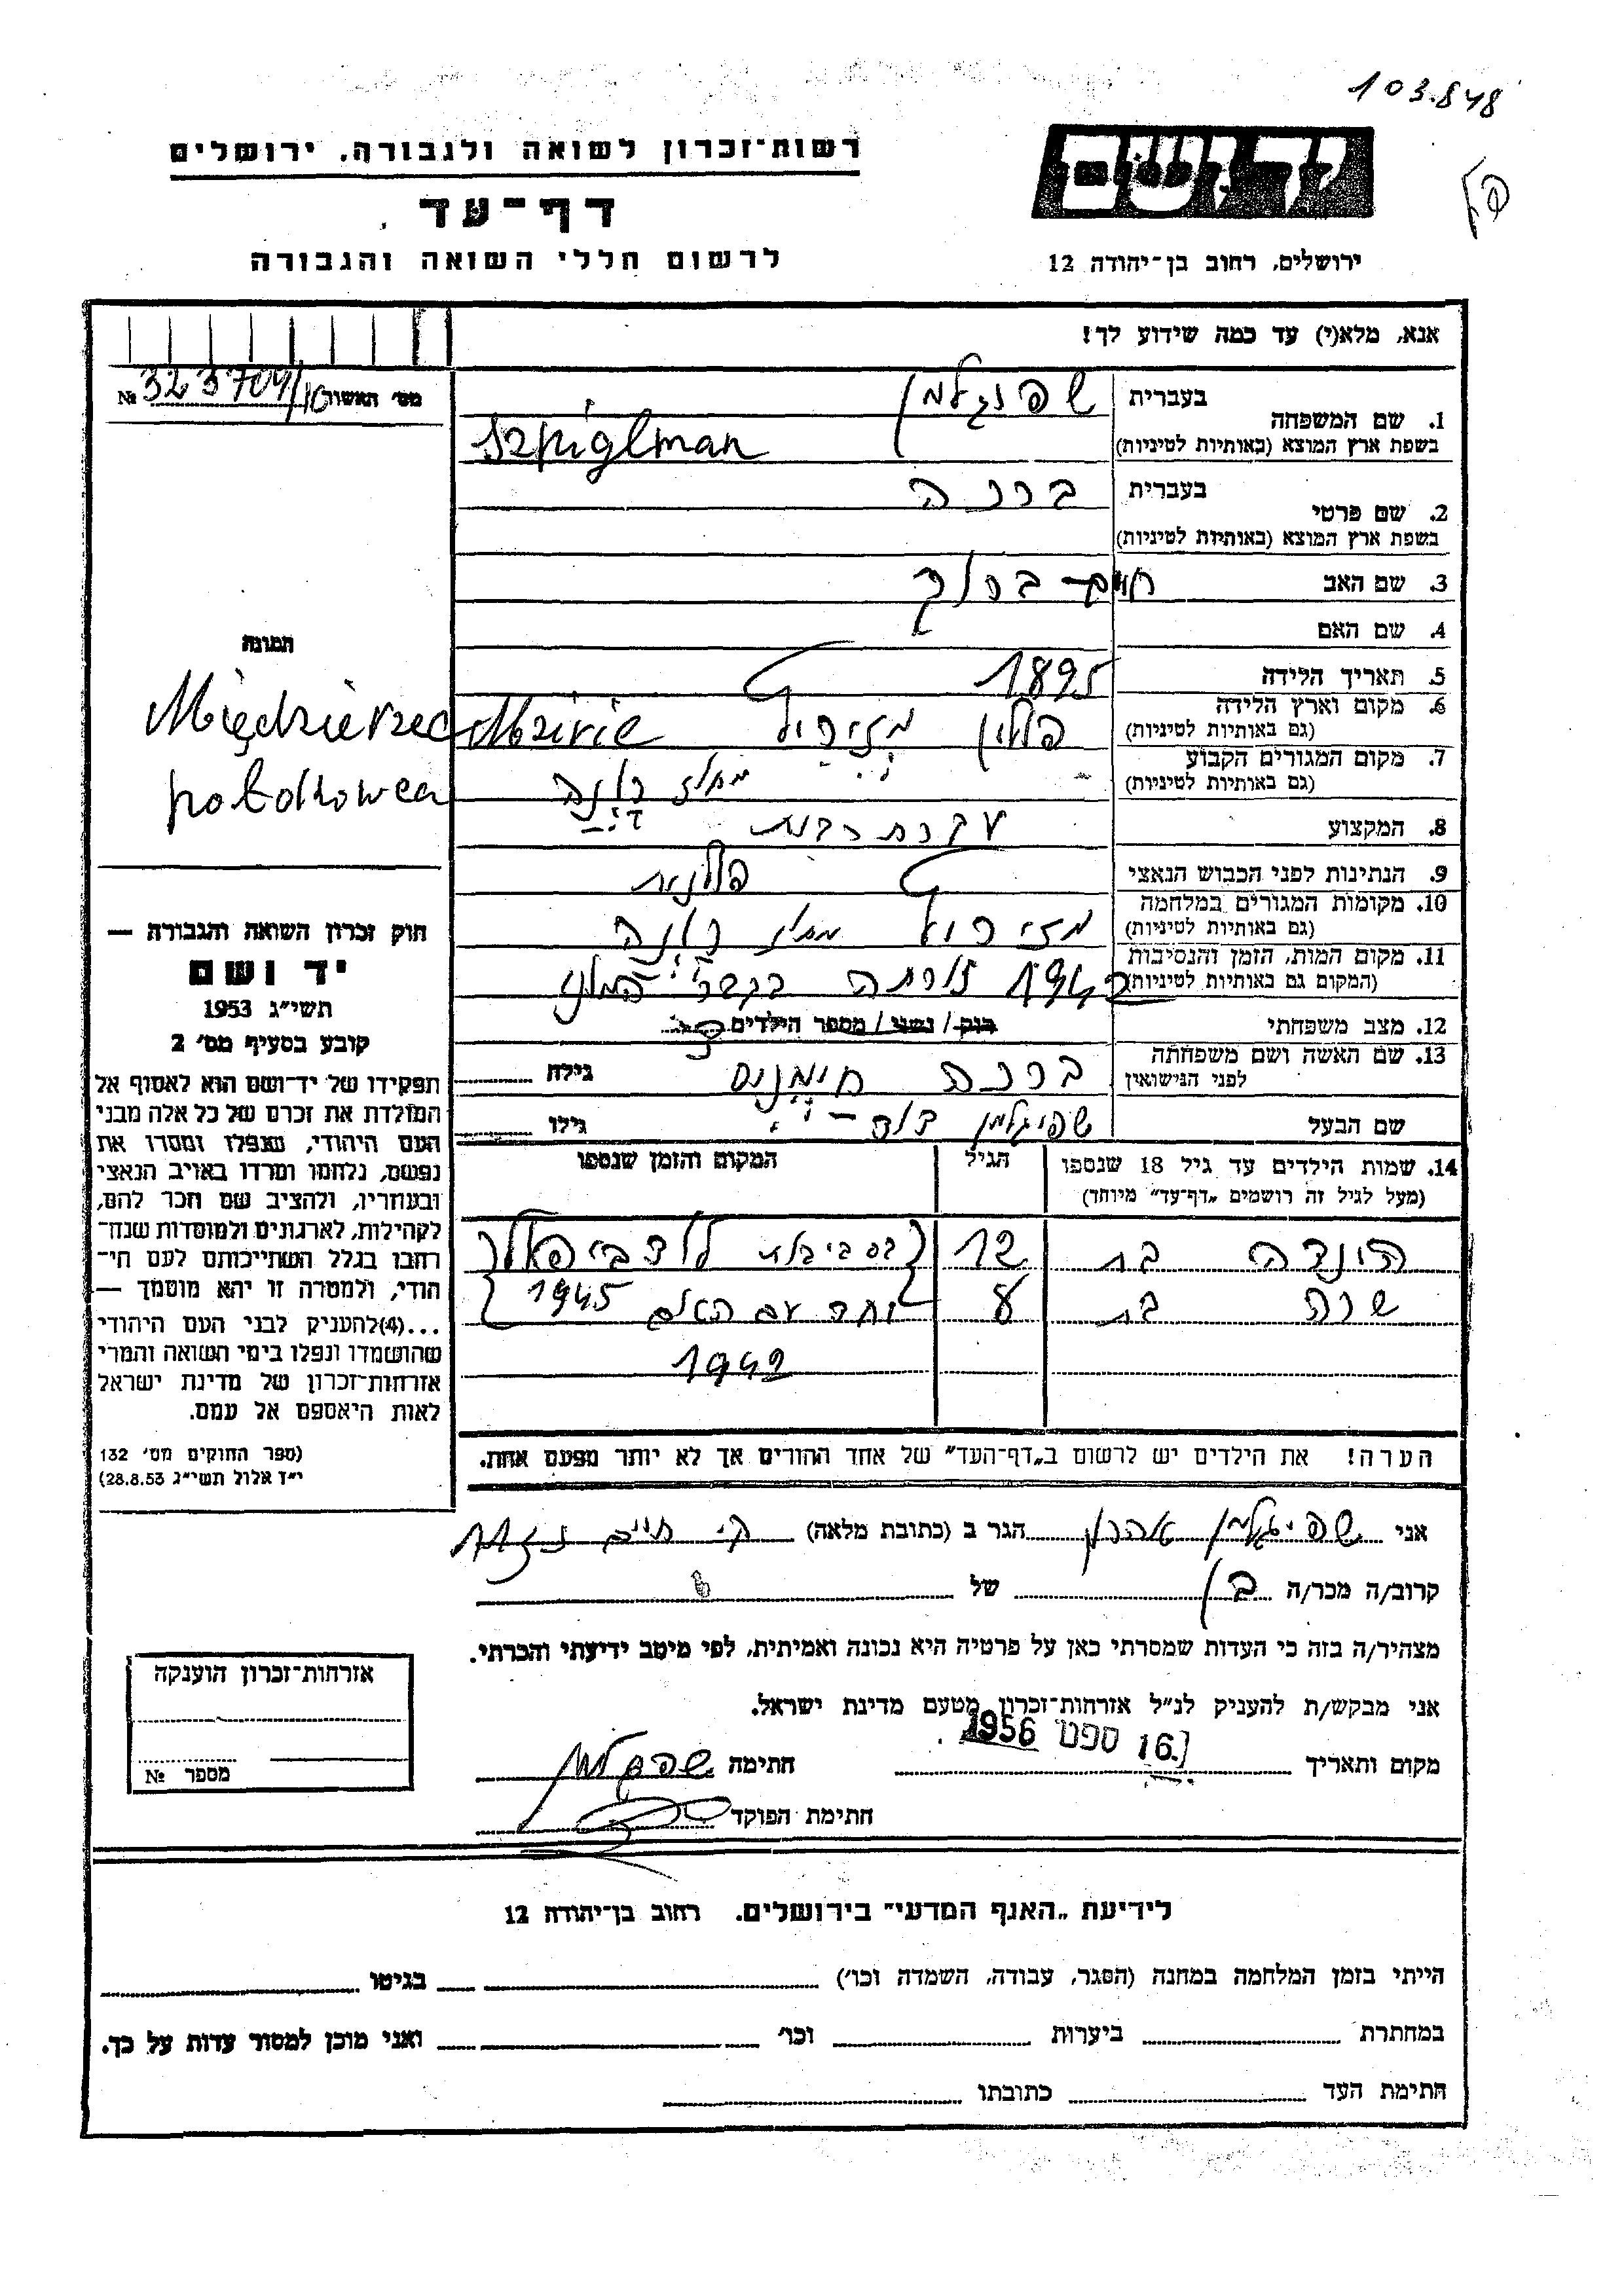 103.848
רשות־זכרון לשואה ולגבורה, ירושלים
יד ושם
דף־עד
לרשום חללי השואה והגבורה
ירושלים, רחוב בן־יהודה 12
אנא, מלא(י) עד כמה שידוע לך!
מס׳ האשור 323709/10 №
1. שם המשפחה
בעברית שפיגלמן
בשפת ארץ המוצא (באותיות לטיניות) Szpiglman
2. שם פרטי
בעברית ברכה
בשפת ארץ המוצא (באותיות לטיניות)
3. שם האב חיים ברוך
4. שם האם
התמונה
5. תאריך הלידה 1895
6. מקום וארץ הלידה
(גם באותיות לטיניות)
פולין
Międzierzec
7. מקום המגורים הקבוע
(גם באותיות לטיניות)
8. המקצוע עקרת בית
9. הנתינות לפני הכבוש הנאצי פולנית
10. מקומות המגורים במלחמה
(גם באותיות לטיניות)
11. מקום המות, הזמן והנסיבות
(המקום גם באותיות לטיניות)
1942 נורתה בקבר
12. מצב משפחתי רווק / נשוי / מספר הילדים
13. שם האשה ושם משפחתה
לפני הנישואין
ברכה גילה
שם הבעל שפיגלמן דוד גילו
14. שמות הילדים עד גיל 18 שנספו
(מעל לגיל זה רושמים „דף־עד״ מיוחד)
הגיל
המקום והזמן שנספו
הינדה בת 12
שרה בת 8 יחד עם האם 1945
1942
הערה! את הילדים יש לרשום ב„דף־העד״ של אחד ההורים אך לא יותר מפעם אחת.
חוק זכרון השואה והגבורה —
יד ושם
תשי״ג 1953
קובע בסעיף מס׳ 2
תפקידו של יד־ושם הוא לאסוף אל
המולדת את זכרם של כל אלה מבני
העם היהודי, שנפלו ומסרו את
נפשם, נלחמו ומרדו באויב הנאצי
ובעוזריו, ולהציב שם וזכר להם,
לקהילות, לארגונים ולמוסדות שנח־
רבו בגלל השתייכותם לעם הי־
הודי, ולמטרה זו יהא מוסמך —
...(4)להעניק לבני העם היהודי
שהושמדו ונפלו בימי השואה והמרי
אזרחות־זכרון של מדינת ישראל
לאות היאספם אל עמם.
(ספר החוקים מס׳ 132
י״ז אלול תשי״ג 28.8.53)
אני שפיגלמן אהרון הגר ב (כתובת מלאה) ק׳ חיים
קרוב/ה מכר/ה בן של
מצהיר/ה בזה כי העדות שמסרתי כאן על פרטיה היא נכונה ואמיתית, לפי מיטב ידיעתי והכרתי.
אני מבקש/ת להעניק לנ״ל אזרחות־זכרון מטעם מדינת ישראל.
מקום ותאריך 16. ספט 1956 חתימה שפיגלמן
חתימת הפוקד
אזרחות־זכרון הוענקה
מספר №
לידיעת „האגף המדעי״ בירושלים. רחוב בן־יהודה 12
הייתי בזמן המלחמה במחנה (הסגר, עבודה, השמדה וכו׳) בגיטו
במחתרת ביערות וכו׳ ואני מוכן למסור עדות על כך.
חתימת העד כתובתו